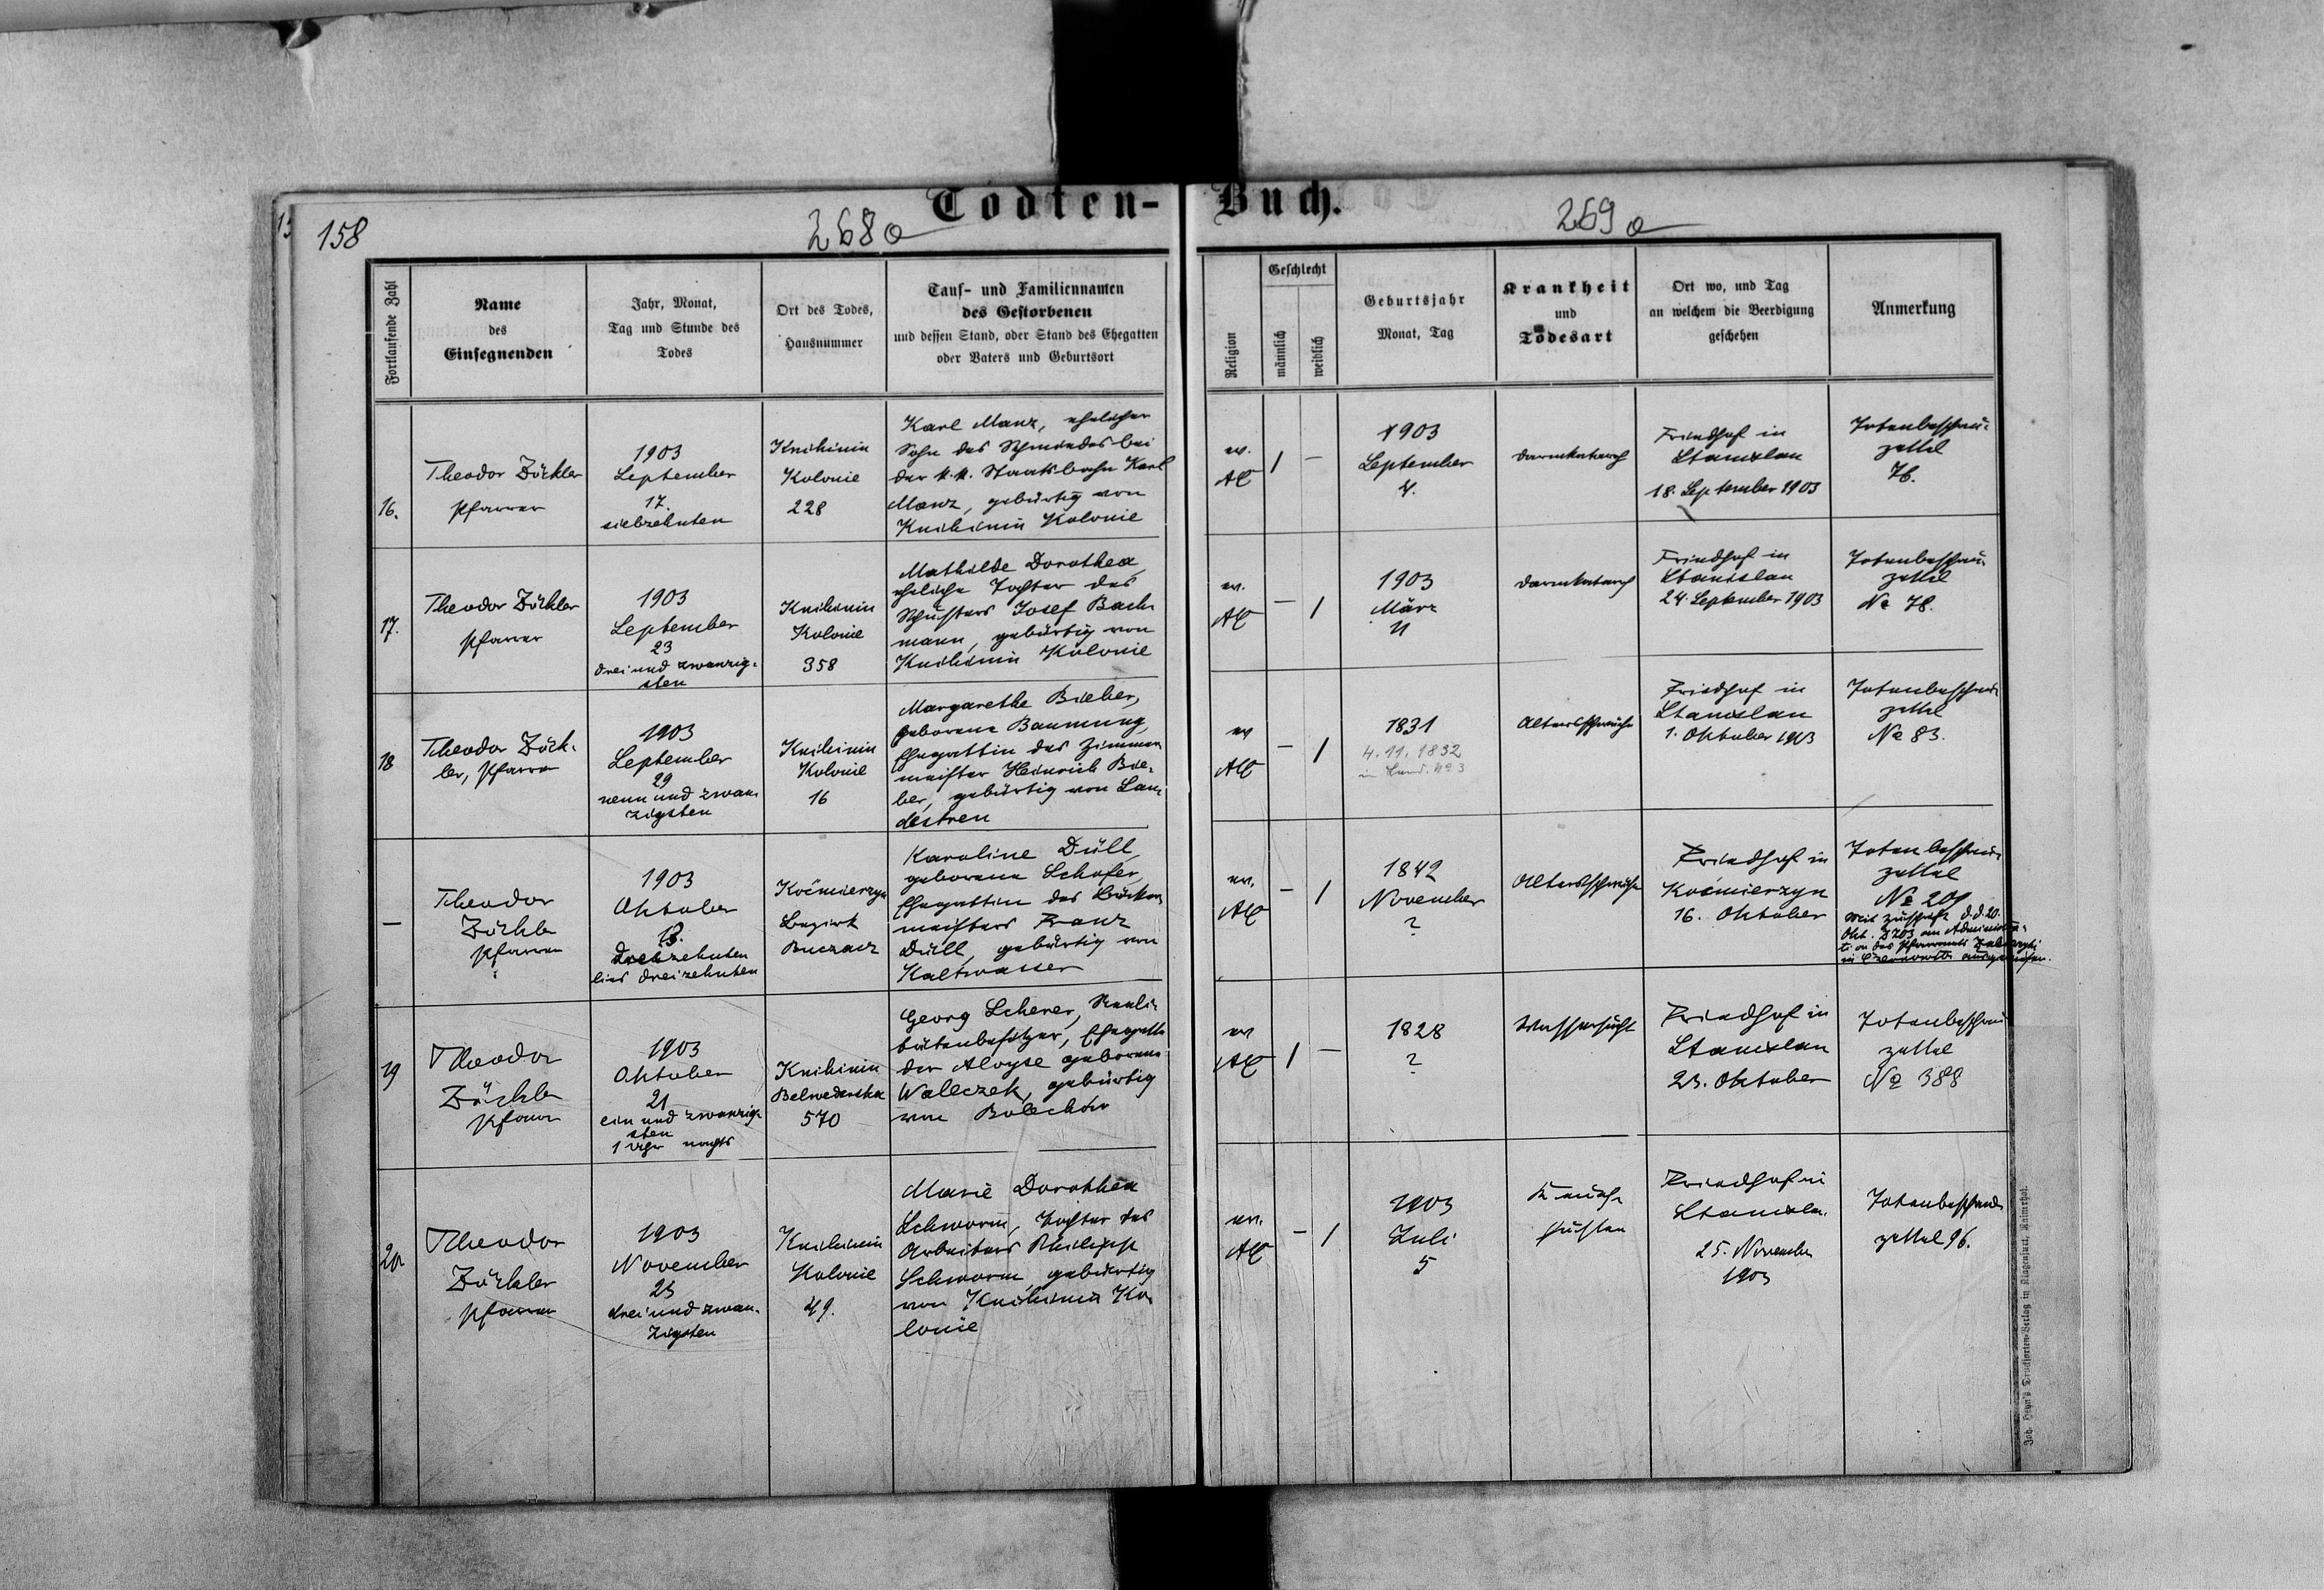 158
268a
Todten-
Buch.
269a
Fortlaufende Zahl
Name
des
Einsegnenden
Jahr, Monat,
Tag und Stunde des
Todes
Ort des Todes,
Hausnummer
Tauf- und Familiennamen
des Gestorbenen
und dessen Stand, oder Stand des Ehegatten
oder Vaters und Geburtsort
Religion
Geschlecht
männlich
weiblich
Geburtsjahr
Monat, Tag
Krankheit
und
Todesart
Ort wo, und Tag
an welchem die Beerdigung
geschehen
Anmerkung
16.
Theodor Zöckler
Pfarrer
1903
September
17.
siebzehnten
Knihinin
Kolonie
228
Karl Manz, ehelicher
Sohn des Schmiedes bei
der k.k. Staatsbahn Karl
Manz, gebürtig von
Knihinin Kolonie
ev.
AC
1
-
1903
September
4.
Darmkatarrh
Friedhof in
Stanislau
18. September 1903
Totenbeschau-
zettel
76.
17.
Theodor Zöckler
Pfarrer
1903
September
23
drei und zwanzig-
sten
Knihinin
Kolonie
358
Mathilde Dorothea,
eheliche Tochter des
Schusters Josef Bach-
mann, gebürtig von
Knihinin Kolonie
ev.
AC
-
1
1903
März
11
Darmkatarrh
Friedhof in
Stanislau
24 September 1903
Totenbeschau-
zettel
No 78.
18
Theodor Zöck-
ler, Pfarrer
1903
September
29
neun und zwan-
zigsten
Knihinin
Kolonie
16
Margarethe Bieber,
geborene Baumung,
Ehegattin des Zimmer-
meister Heinrich Bie-
ber, gebürtig von Lan-
destreu
ev
AC
-
1
1831
4. 11. 1832
in Land. No 3
Altersschwäche
Friedhof in
Stanislau
1. Oktober 1903
Totenbeschau-
zettel
No 83.
-
Theodor
Zöckler
Pfarrer
1903
Oktober
13.
dreizehnten
lies dreizehnten
Koćmierzyn
Bezirk
Buczacz
Karoline Düll,
geborene Schofer,
Ehegattin des Bäcker-
meisters Franz
Düll, gebürtig von
Kaltwasser
ev.
AC
-
1
1842
November
?
Altersschwäche
Friedhof in
Koćmierzyn
16. Oktober
Totenbeschau-
zettel
No 201
Mit Zuschrift d.d. 20.
Okt. Z 203 an Administra-
tion des Pfarramts Zaleszczyki
in
19
Theodor
Zöckler
Pfarrer
1903
Oktober
21
ein und zwanzig-
sten
1 Uhr nachts
Knihinin
Belwederska
570
Georg Scherer, Reali-
tätenbesitzer, Ehegatte
der Aloyse geborene
Waleczek, gebürtig
von Bolechów
ev
AC
1
-
1828
?
Wassersucht
Friedhof in
Stanislau
23. Oktober
Totenbeschau
zettel
No 388
20.
Theodor
Zöckler
Pfarrer
1903
November
23
drei und zwan-
zigsten
Knihinin
Kolonie
49.
Marie Dorothea
Schworm, Tochter des
Arbeiters Philipp
Schworm, gebürtig
von Knihinin Ko-
lonie
ev.
AC
-
1
1903
Juli
5
Keuch-
husten
Friedhof in
Stanislau
25. November
1903
Totenbeschau
zettel 96.
Joh. Heyn's Drucksorten-Verlag in Klagenfurt,